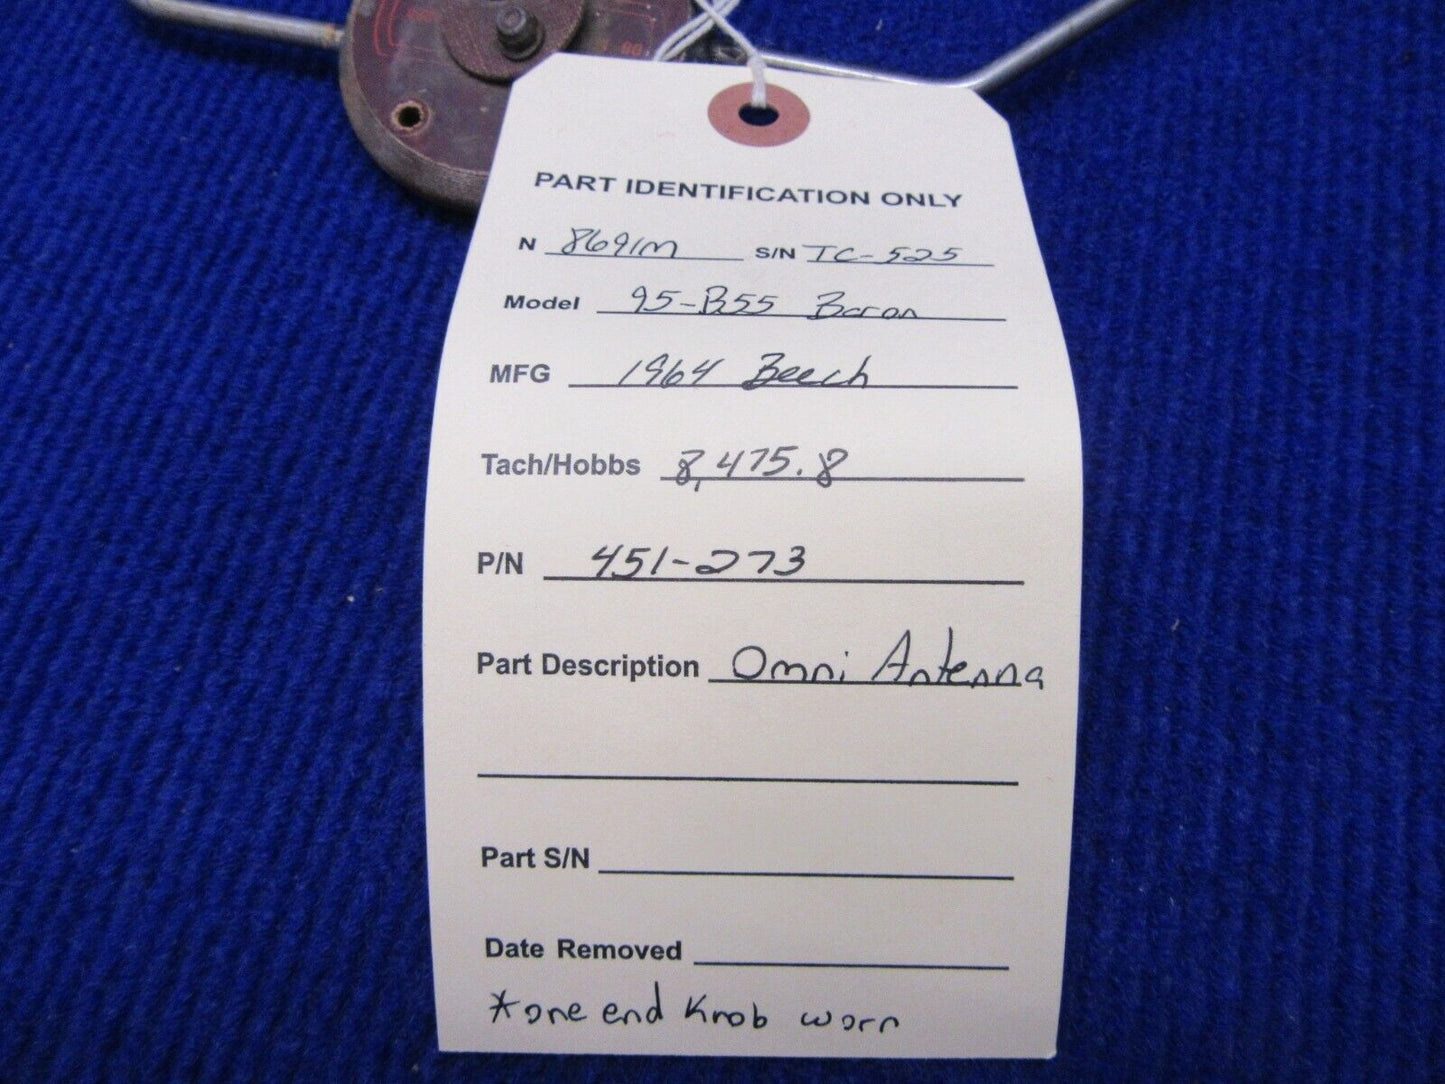 PART IDENTIFICATION ONLY
N 8691M S/N TC-525
Model 95-B55 Baron
MFG 1964 Beech
Tach/Hobbs 8,475.8
P/N 451-273
Part Description Omni Antenna
Part S/N
Date Removed
*one end knob worn